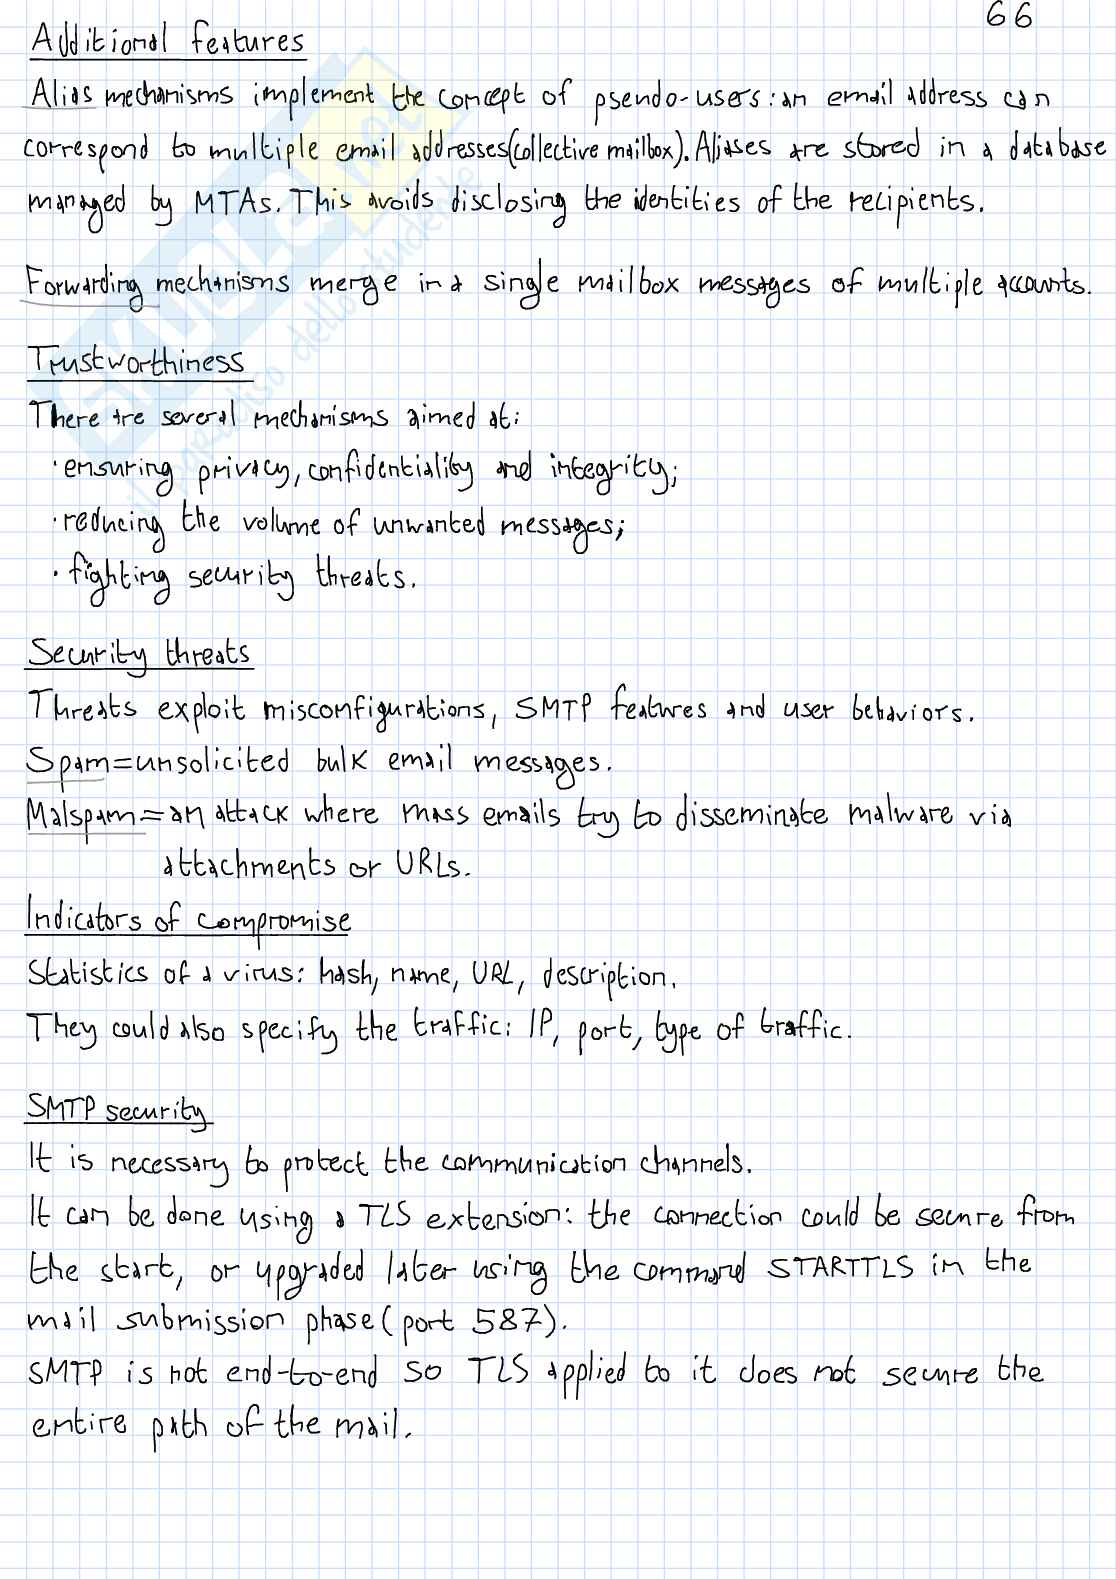 66
Additional features
Alias mechanisms implement the concept of pseudo-users: an email address can
correspond to multiple email addresses (collective mailbox). Aliases are stored in a database
managed by MTAs. This avoids disclosing the identities of the recipients.
Forwarding mechanisms merge in a single mailbox messages of multiple accounts.
Trustworthiness
There are several mechanisms aimed at:
· ensuring privacy, confidentiality and integrity;
· reducing the volume of unwanted messages;
· fighting security threats.
Security threats
Threats exploit misconfigurations, SMTP features and user behaviors.
Spam = unsolicited bulk email messages.
Malspam = an attack where mass emails try to disseminate malware via
attachments or URLs.
Indicators of compromise
Statistics of a virus: hash, name, URL, description.
They could also specify the traffic: IP, port, type of traffic.
SMTP security
It is necessary to protect the communication channels.
It can be done using a TLS extension: the connection could be secure from
the start, or upgraded later using the command STARTTLS in the
mail submission phase (port 587).
SMTP is not end-to-end so TLS applied to it does not secure the
entire path of the mail.
SKUOLA.net
il paradiso dello studente